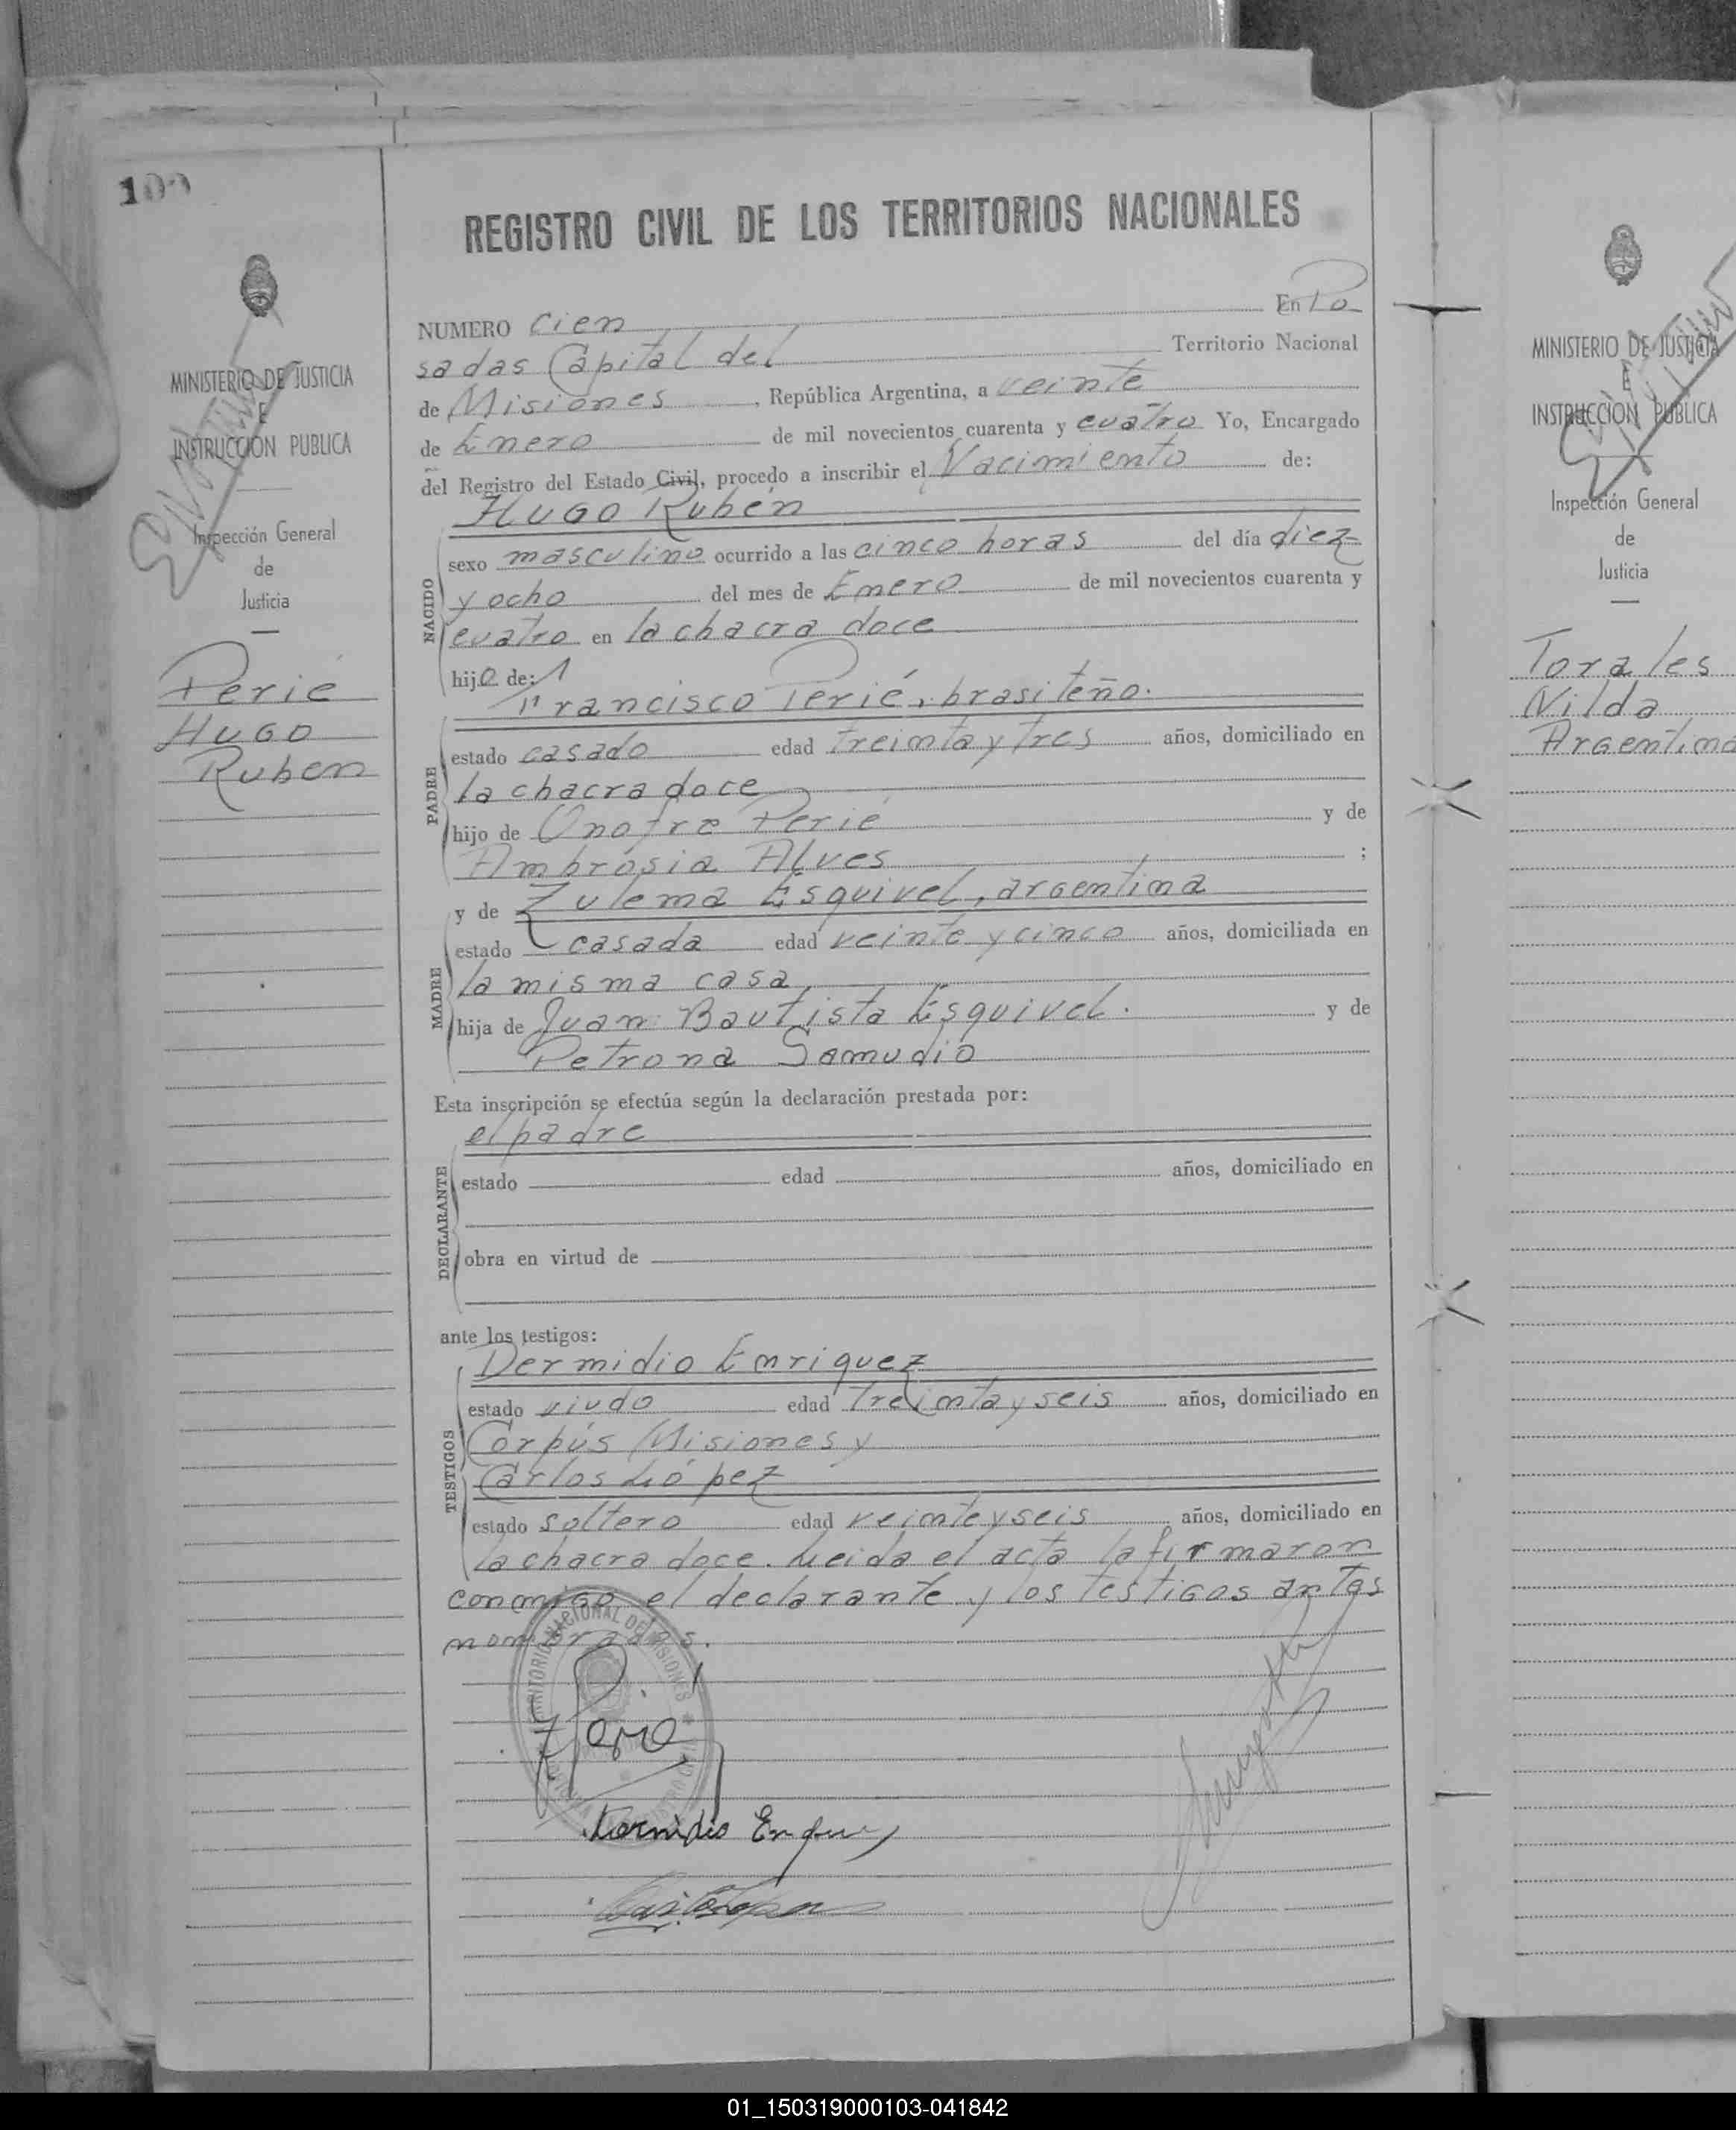 100
MINISTERIO DE JUSTICIA
E
INSTRUCCION PUBLICA
Inspección General
de
Justicia
Perié
Hugo
Ruben
REGISTRO CIVIL DE LOS TERRITORIOS NACIONALES
NUMERO Cien En Po
sadas Capital del Territorio Nacional
de Misiones, República Argentina, a veinte
de Enero de mil novecientos cuarenta y cuatro Yo, Encargado
del Registro del Estado Civil, procedo a inscribir el Nacimiento de:
Hugo Rubén
NACIDO
sexo masculino ocurrido a las cinco horas del día diez
y ocho del mes de Enero de mil novecientos cuarenta y
cuatro en la chacra doce
hijo de:
Francisco Perié, brasileño.
PADRE
estado casado edad treinta y tres años, domiciliado en
la chacra doce
hijo de Onofre Perié y de
Ambrosia Alves ;
y de Zulema Esquivel, argentina
MADRE
estado casada edad veinte y cinco años, domiciliada en
la misma casa
hija de Juan Bautista Esquivel. y de
Petrona Samudio
Esta inscripción se efectúa según la declaración prestada por:
el padre
DECLARANTE
estado edad años, domiciliado en
obra en virtud de
ante los testigos:
Dermidio Enriquez
TESTIGOS
estado viudo edad treinta y seis años, domiciliado en
Corpús Misiones y
Carlos López
estado soltero edad veinte y seis años, domiciliado en
la chacra doce. Leida el acta la firmaron
conmigo el declarante y los testigos antes
nombrados.
TERRITORIO NACIONAL DE MISIONES
Torales
Nilda
Argentina
MINISTERIO DE JUSTICIA
E
INSTRUCCION PUBLICA
Inspección General
de
Justicia
01_150319000103-041842